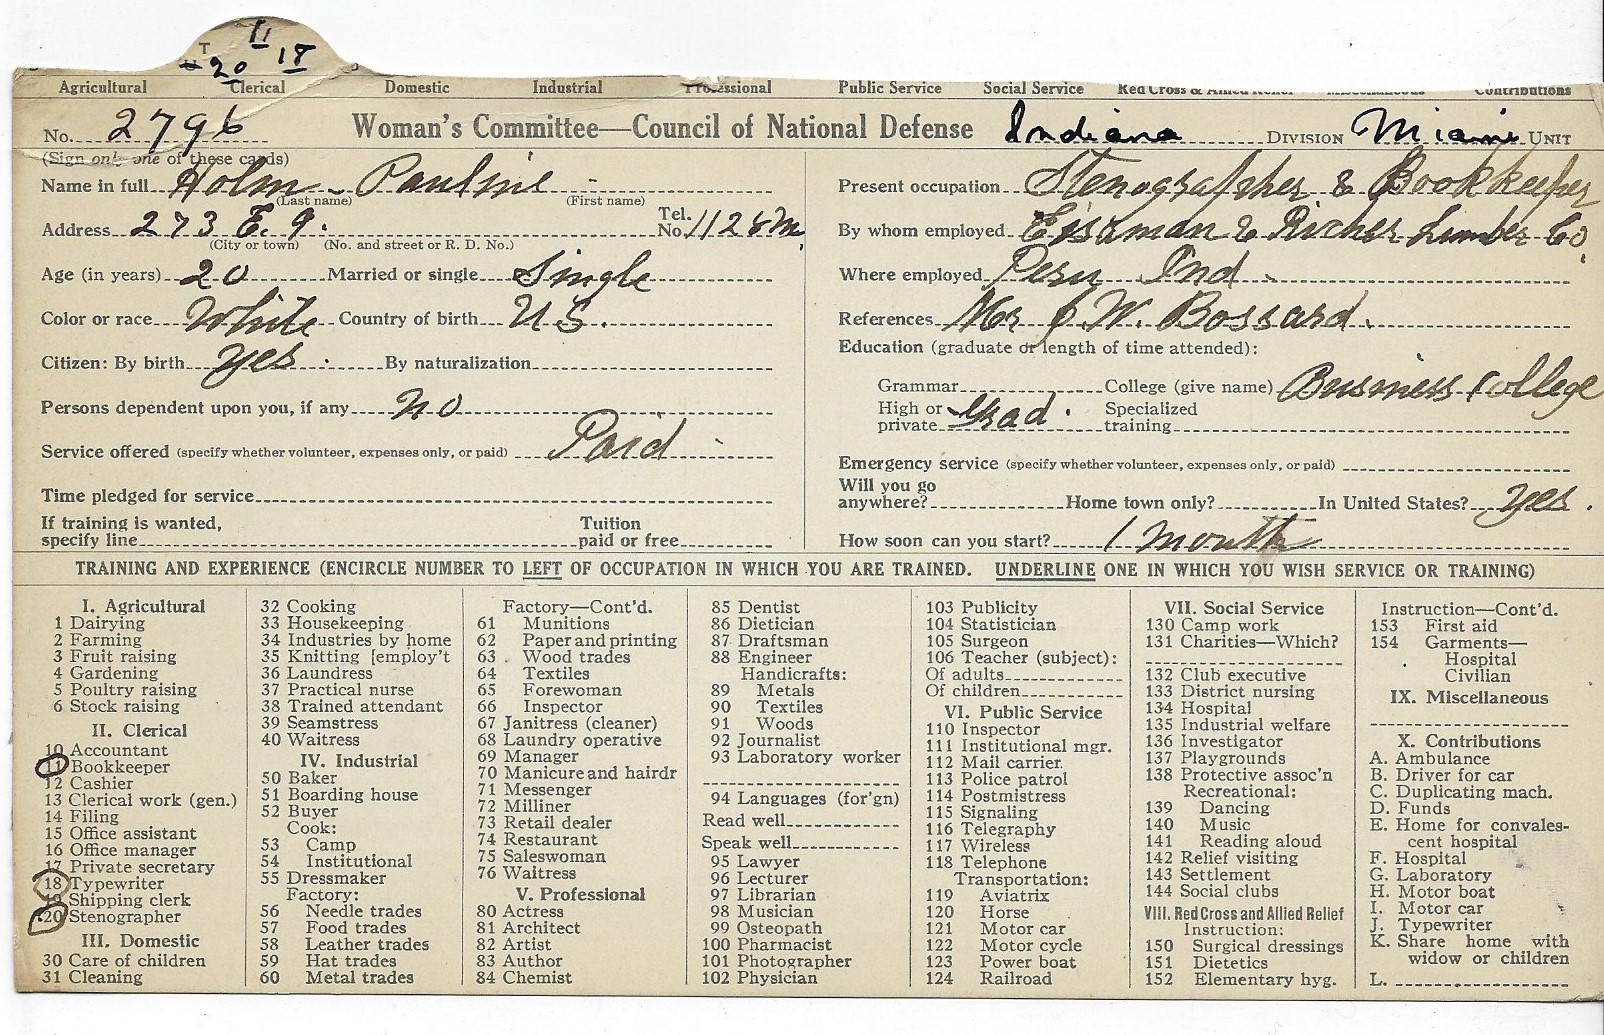 T 11
20 18
Agricultural Clerical Domestic Industrial Professional Public Service Social Service Red Cross & Allied Relief Miscellaneous Contributions
No. 2796 Woman's Committee—Council of National Defense Indiana DIVISION Miami UNIT
(Sign only one of these cards)
Name in full Holm - Pauline Present occupation Stenographer & Bookkeeper
(Last name) (First name)
Address 273 E. 9. Tel. No. 1128M. By whom employed & Richer Lumber Co.
(City or town) (No. and street or R. D. No.)
Age (in years) 20 Married or single Single Where employed Peru Ind.
Color or race White Country of birth U.S. References Mr J. W. Bossard.
Citizen: By birth yes. By naturalization Education (graduate or length of time attended):
Grammar College (give name) Business College
Persons dependent upon you, if any no High or private Grad. Specialized training
Service offered (specify whether volunteer, expenses only, or paid) Paid Emergency service (specify whether volunteer, expenses only, or paid)
Time pledged for service Will you go anywhere? Home town only? In United States? yes.
If training is wanted, specify line Tuition paid or free How soon can you start? 1 month
TRAINING AND EXPERIENCE (ENCIRCLE NUMBER TO LEFT OF OCCUPATION IN WHICH YOU ARE TRAINED. UNDERLINE ONE IN WHICH YOU WISH SERVICE OR TRAINING)
I. Agricultural
1 Dairying
2 Farming
3 Fruit raising
4 Gardening
5 Poultry raising
6 Stock raising
II. Clerical
10 Accountant
11 Bookkeeper
12 Cashier
13 Clerical work (gen.)
14 Filing
15 Office assistant
16 Office manager
17 Private secretary
18 Typewriter
19 Shipping clerk
20 Stenographer
III. Domestic
30 Care of children
31 Cleaning
32 Cooking
33 Housekeeping
34 Industries by home
35 Knitting [employ't
36 Laundress
37 Practical nurse
38 Trained attendant
39 Seamstress
40 Waitress
IV. Industrial
50 Baker
51 Boarding house
52 Buyer
Cook:
53 Camp
54 Institutional
55 Dressmaker
Factory:
56 Needle trades
57 Food trades
58 Leather trades
59 Hat trades
60 Metal trades
Factory—Cont'd.
61 Munitions
62 Paper and printing
63 Wood trades
64 Textiles
65 Forewoman
66 Inspector
67 Janitress (cleaner)
68 Laundry operative
69 Manager
70 Manicure and hairdr
71 Messenger
72 Milliner
73 Retail dealer
74 Restaurant
75 Saleswoman
76 Waitress
V. Professional
80 Actress
81 Architect
82 Artist
83 Author
84 Chemist
85 Dentist
86 Dietician
87 Draftsman
88 Engineer
Handicrafts:
89 Metals
90 Textiles
91 Woods
92 Journalist
93 Laboratory worker
94 Languages (for'gn)
Read well
Speak well
95 Lawyer
96 Lecturer
97 Librarian
98 Musician
99 Osteopath
100 Pharmacist
101 Photographer
102 Physician
103 Publicity
104 Statistician
105 Surgeon
106 Teacher (subject):
Of adults
Of children
VI. Public Service
110 Inspector
111 Institutional mgr.
112 Mail carrier
113 Police patrol
114 Postmistress
115 Signaling
116 Telegraphy
117 Wireless
118 Telephone
Transportation:
119 Aviatrix
120 Horse
121 Motor car
122 Motor cycle
123 Power boat
124 Railroad
VII. Social Service
130 Camp work
131 Charities—Which?
132 Club executive
133 District nursing
134 Hospital
135 Industrial welfare
136 Investigator
137 Playgrounds
138 Protective assoc'n
Recreational:
139 Dancing
140 Music
141 Reading aloud
142 Relief visiting
143 Settlement
144 Social clubs
VIII. Red Cross and Allied Relief
Instruction:
150 Surgical dressings
151 Dietetics
152 Elementary hyg.
Instruction—Cont'd.
153 First aid
154 Garments—
Hospital
Civilian
IX. Miscellaneous
X. Contributions
A. Ambulance
B. Driver for car
C. Duplicating mach.
D. Funds
E. Home for convales-
cent hospital
F. Hospital
G. Laboratory
H. Motor boat
I. Motor car
J. Typewriter
K. Share home with
widow or children
L.